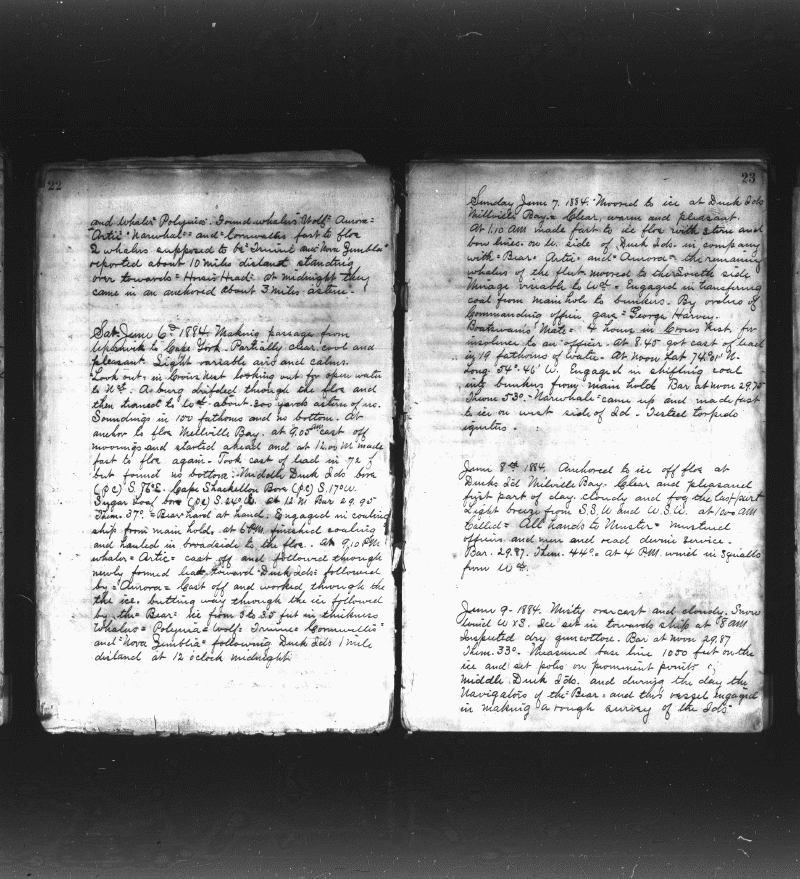 22
and whaler "Polynia". Found whalers "Wolf" "Aurora"
"Artic" "Narwhal" and "Cornwallis" fast to floe
2 whalers supposed to be "Triune" and "Nova Zembla"
reported about 10 miles distant standing
over towards "Horses Head". At midnight they
came in an anchored about 3 miles astern.
Sat. June 6th 1884. Making passage from
Upernivik to Cape York. Partially clear, cool and
pleasant. Light variable airs and calms.
Look out in Crows Nest looking out for open water
to Nd. A berg drifted through the floe and
then turned to Wd about 300 yards astern of us.
Soundings in 100 fathoms and no bottom. At
anchor to floe Melville Bay. at 9.05 AM cast off
moorings and started ahead and at 12.05 M made
fast to floe again. Took cast of lead in 72 f
but found no bottom. Middle Duck Ids bore
(pc) S. 76° E. Cape Shackelton Bore (pc) S. 17° W.
Sugar Loaf bore (pc) S. 24° W. at 12 M Bar 29.95
Ther. 37°. "Bear" hard at hand. Engaged in coaling
ship from main hold, at 6 PM. finished coaling
and hauled in broadside to the floe. At 9.10 PM
whaler "Artic" cast off and followed through
newly formed lead toward Duck Ids followed
by "Aurora" Cast off and worked through the
the ice, butting way through the ice followed
by the "Bear" Ice from 3 to 3.5 feet in thickness
Whalers "Polynia" "Wolf" "Triune" "Cornwallis"
and "Nova Zembla" following Duck Ids 1 mile
distant at 12 o'clock midnight
23
Sunday June 7. 1884. Moored to ice at Duck Ids
Mellville Bay. Clear, warm and pleasant.
At 1.10 AM made fast to ice floe with stern and
bow lines. on W. side of Duck Ids. in company
with "Bear" "Artic" and "Aurora" the remaining
whalers of the fleet moored to the South side
Mirage visable to Wd. Engaged in transferring
coal from main hold to bunkers. By orders of
Commanding officer gave George Harvey.
Boatswains Mate 4 hours in Crows Nest for
insolence to an officer. At 8.45 got cast of lead
in 19 fathoms of water. At Noon Lat 74°.01' N.
Long. 54°. 46' W. Engaged in shifting coal
into bunkers from main hold. Bar at noon 29.75
Therm 53°. "Narwhale" came up and made fast
to ice on west side of Id. Tested torpedo
igniters.
June 8th 1884. Anchored to ice off floe at
Ducks Id Melville Bay. Clear and pleasant
first part of day. cloudy and fog the last part
Light breeze from S.S.W and W.S.W. at 10.00 AM
Called "All hands to Muster" mustered
officers and men and read divine service.
Bar. 29.87. Ther. 44°. at 4 PM. wind in squalls
from Wd.
June 9 - 1884. Misty overcast and cloudy. Snow
Wind W x S. Ice set in towards ship at 8 AM
Inspected dry guncotton. Bar at noon 29.87
Ther. 33°. Measured base line 1050 feet on the
ice and set poles on prominent points
middle Duck Ids. and during the day the
Navigators of the "Bear" and this vessel engaged
in making a rough survey of the Ids